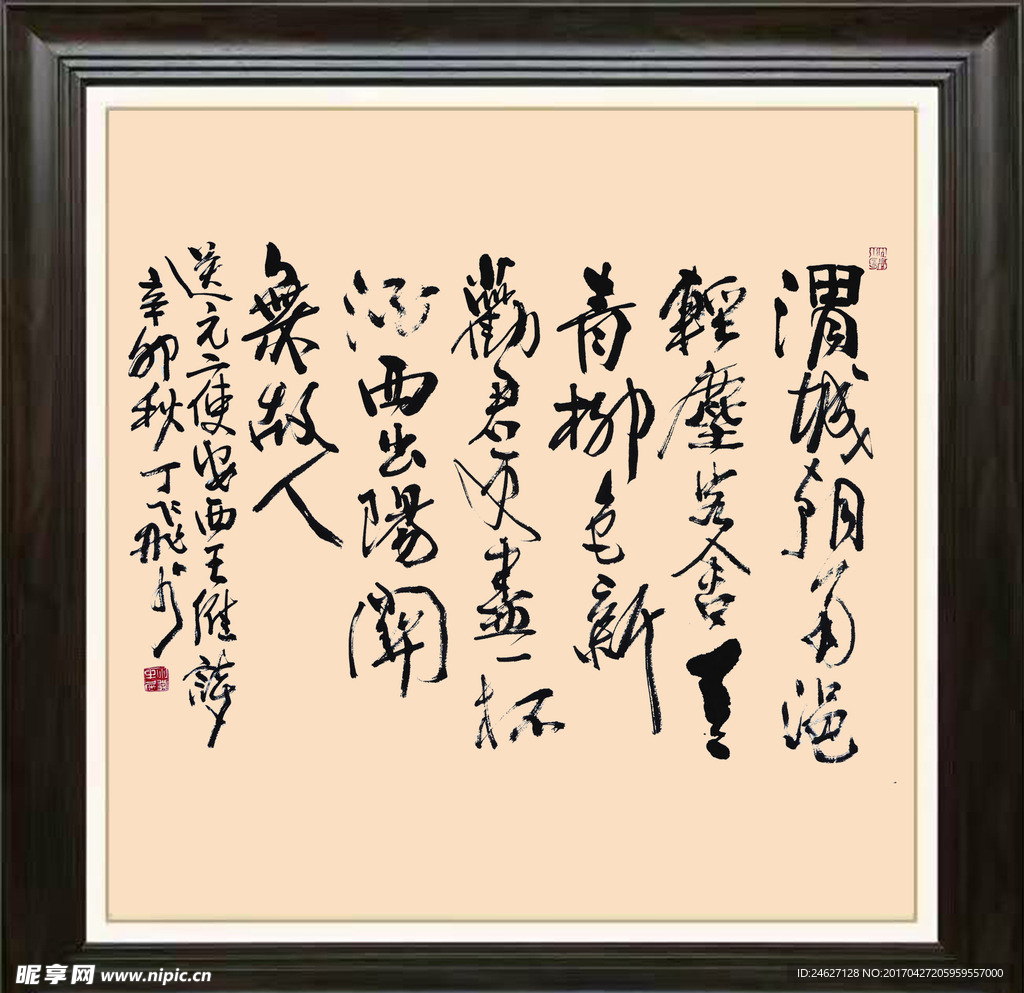 渭城朝雨浥
輕塵客舍青
青柳色新
勸君更盡一杯
酒西出陽關
無故人
送元二使安西王維詩
辛卯秋丁飛书
昵享网 www.nipic.cn
ID:24627128 NO:20170427205959557000